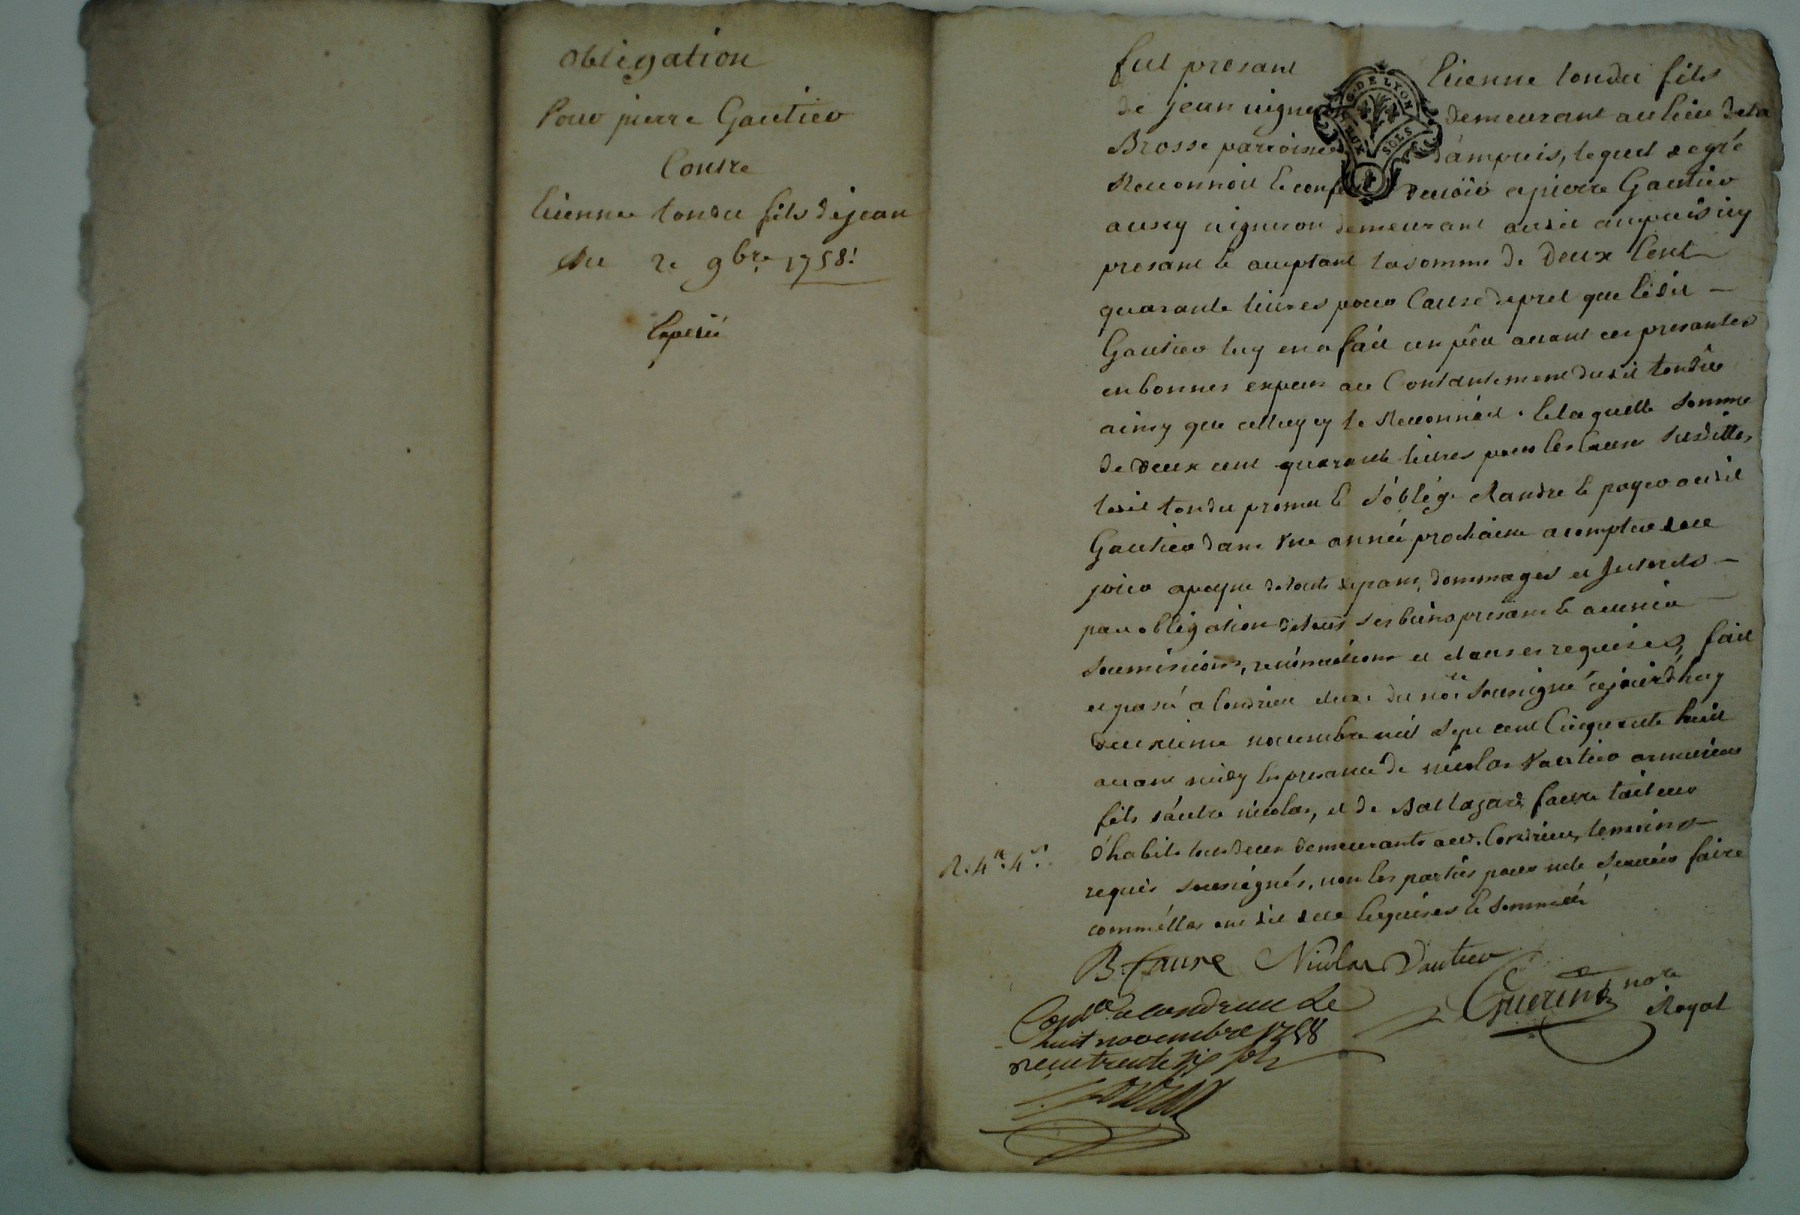 obligation
Pour pierre Gautier
Contre
Etienne tondu fils de jean
du 2e 9bre 1758.
Expedié
fut present Etienne tondu fils
de jean vigneron demeurant au lieu dela
Brosse parroisse d'ampuis, lequel de gré
Reconnoit et confesse devoir a pierre Gautier
aussy vigneron demeurant audit ampuis icy
presant et acceptant la somme de deux Cent
quarante livres pour Cause de pret que ledit
Gautier luy en a fait un peu avant ces presantes
en bonnes especes au Contantement dudit tondu
ainsy que celluy cy le Reconnoit. Et laquelle somme
de deux cent quarante livres pour les Causes susdittes
ledit tondu promet et s'oblige Randre et payer audit
Gautier dans Une année prochaine a compter de ce
jour a peyne de touts depans, dommages et Interests
par obligation de tous ses biens presant et avenir
soumissions, renonciations et clauses requises, fait
et passé a Condrieu etude du nore. soussigné cejourd'huy
deuxieme novembre mil sept cent Cinquante huit
avant midy En presance de nicolas Vautier armurier
fils d'autre nicolas, et de Baltazard faure tailleur
d'habits tous deux demeurants aud. Condrieu, temoins
requis soussignés, non les parties pour ne le sçavoir faire
comm'elles ont dit de ce Enquises et sommées
R. 4ll. 4s.
B. faure Nicolas Vautier
Guerin nore Royal
Conlle a condrieu Le
huit novembre 1758
recu trente six sols